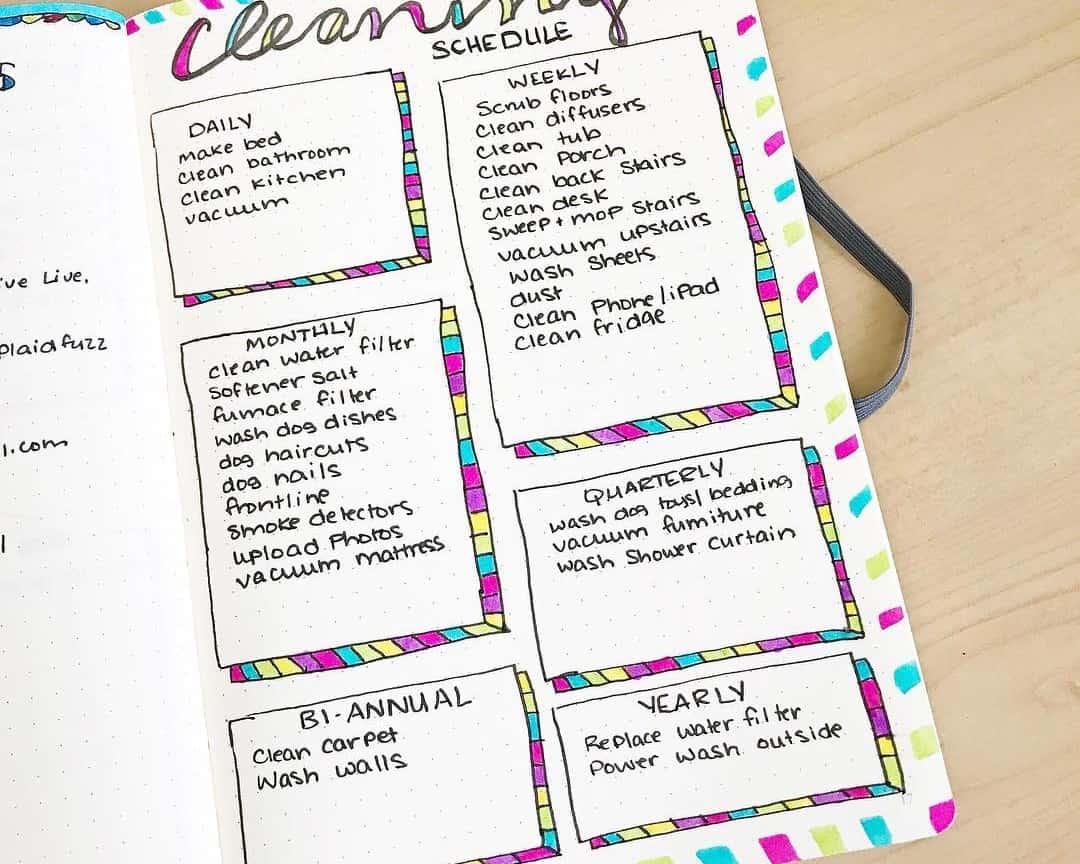 S
've Live.
Plaid fuzz
l.com
Cleaning
SCHEDULE
DAILY
make bed
clean bathroom
clean kitchen
vacuum
WEEKLY
Scrub floors
clean diffusers
clean tub
clean Porch
clean back Stairs
clean desk
sweep + mop Stairs
vacuum upstairs
wash Sheets
dust
clean Phone/iPad
clean fridge
MONTHLY
clean water filter
softener salt
furnace filter
wash dog dishes
dog haircuts
dog nails
frontline
smoke detectors
upload Photos
vacuum mattress
QUARTERLY
wash dog toys/bedding
vacuum furniture
wash Shower curtain
BI-ANNUAL
Clean carpet
Wash walls
YEARLY
Replace water filter
Power wash outside